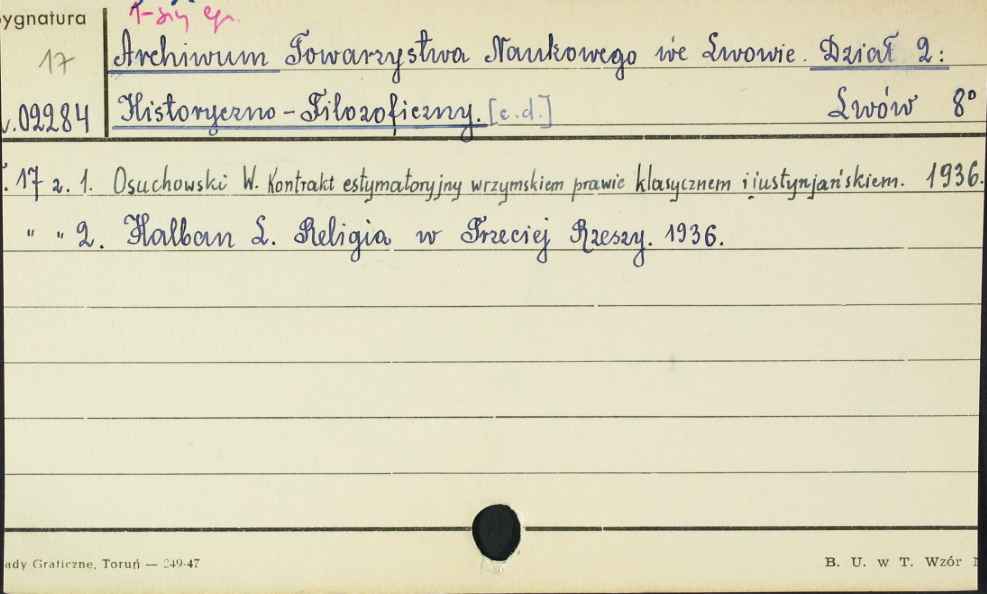 ygnatura 1-szy eg.
17 Archiwum Towarzystwa Naukowego we Lwowie. Dział 2:
.02284 Historyczno-Filozoficzny. [c.d.] Lwów 8°
. 17 z. 1. Osuchowski W. Kontrakt estymatoryjny wrzymskiem prawie klasycznem i iustynjańskiem. 1936.
" " 2. Halban L. Religia w Trzeciej Rzeszy. 1936.
ady Graficzne, Toruń — 249-47 B. U. w T. Wzór